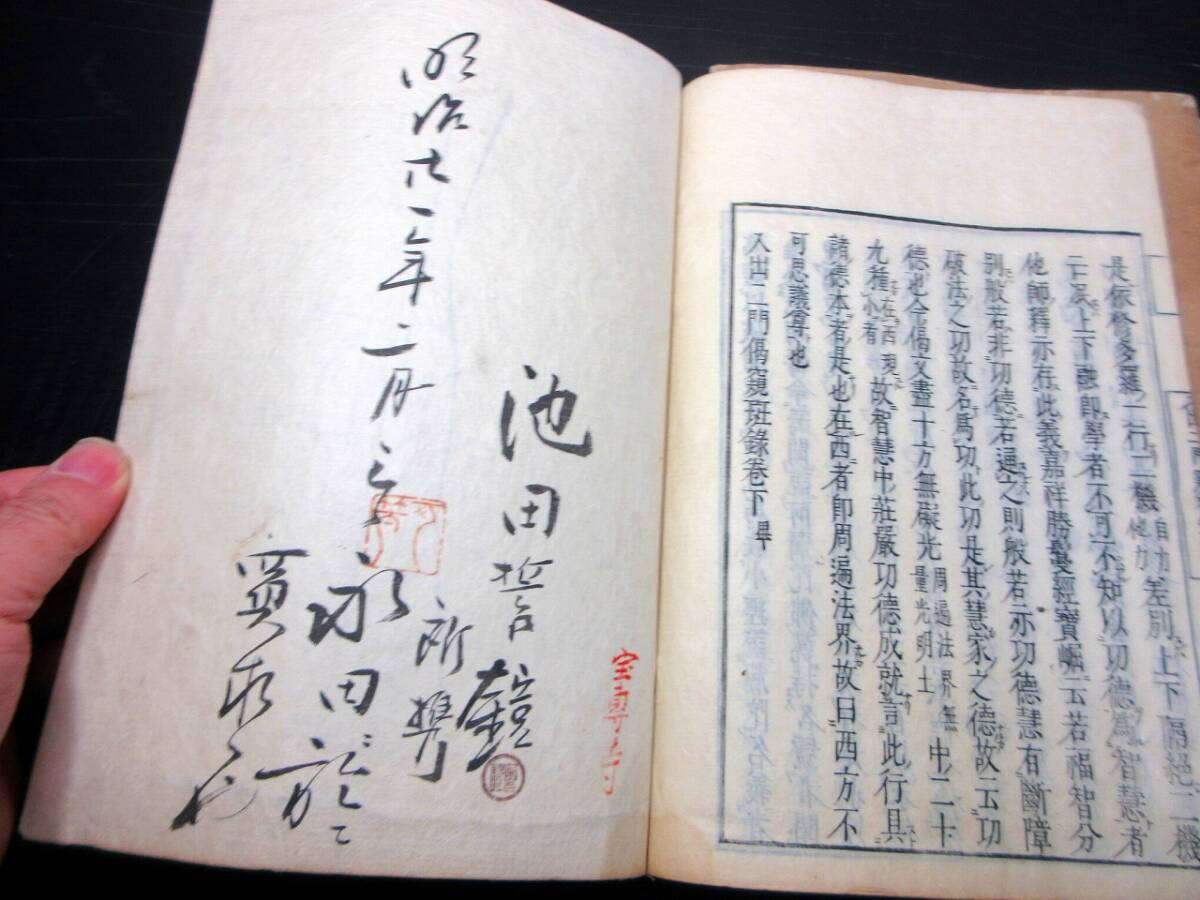 是依修多羅一行二機自力他力差別上下隔絶二機
云泯上下融即學者不可不知以功德爲智慧者
他師釋亦存此義嘉祥勝鬘經寶崛云若福智分
別般若非功德若通之則般若亦功德慧有斷障
破法之功故名爲功此功是其慧家之德故云功
德也今偈文盡十方無礙光周遍法界無量光明土中二十
九種在西現小者故智慧中莊嚴功德成就言此行具
諸德本者是也在西者即周遍法界故曰西方不
可思議尊也
入出二門偈窺斑錄卷下畢
宝專寺
池田誓鐘
所攜
明治廿一年二月
田於